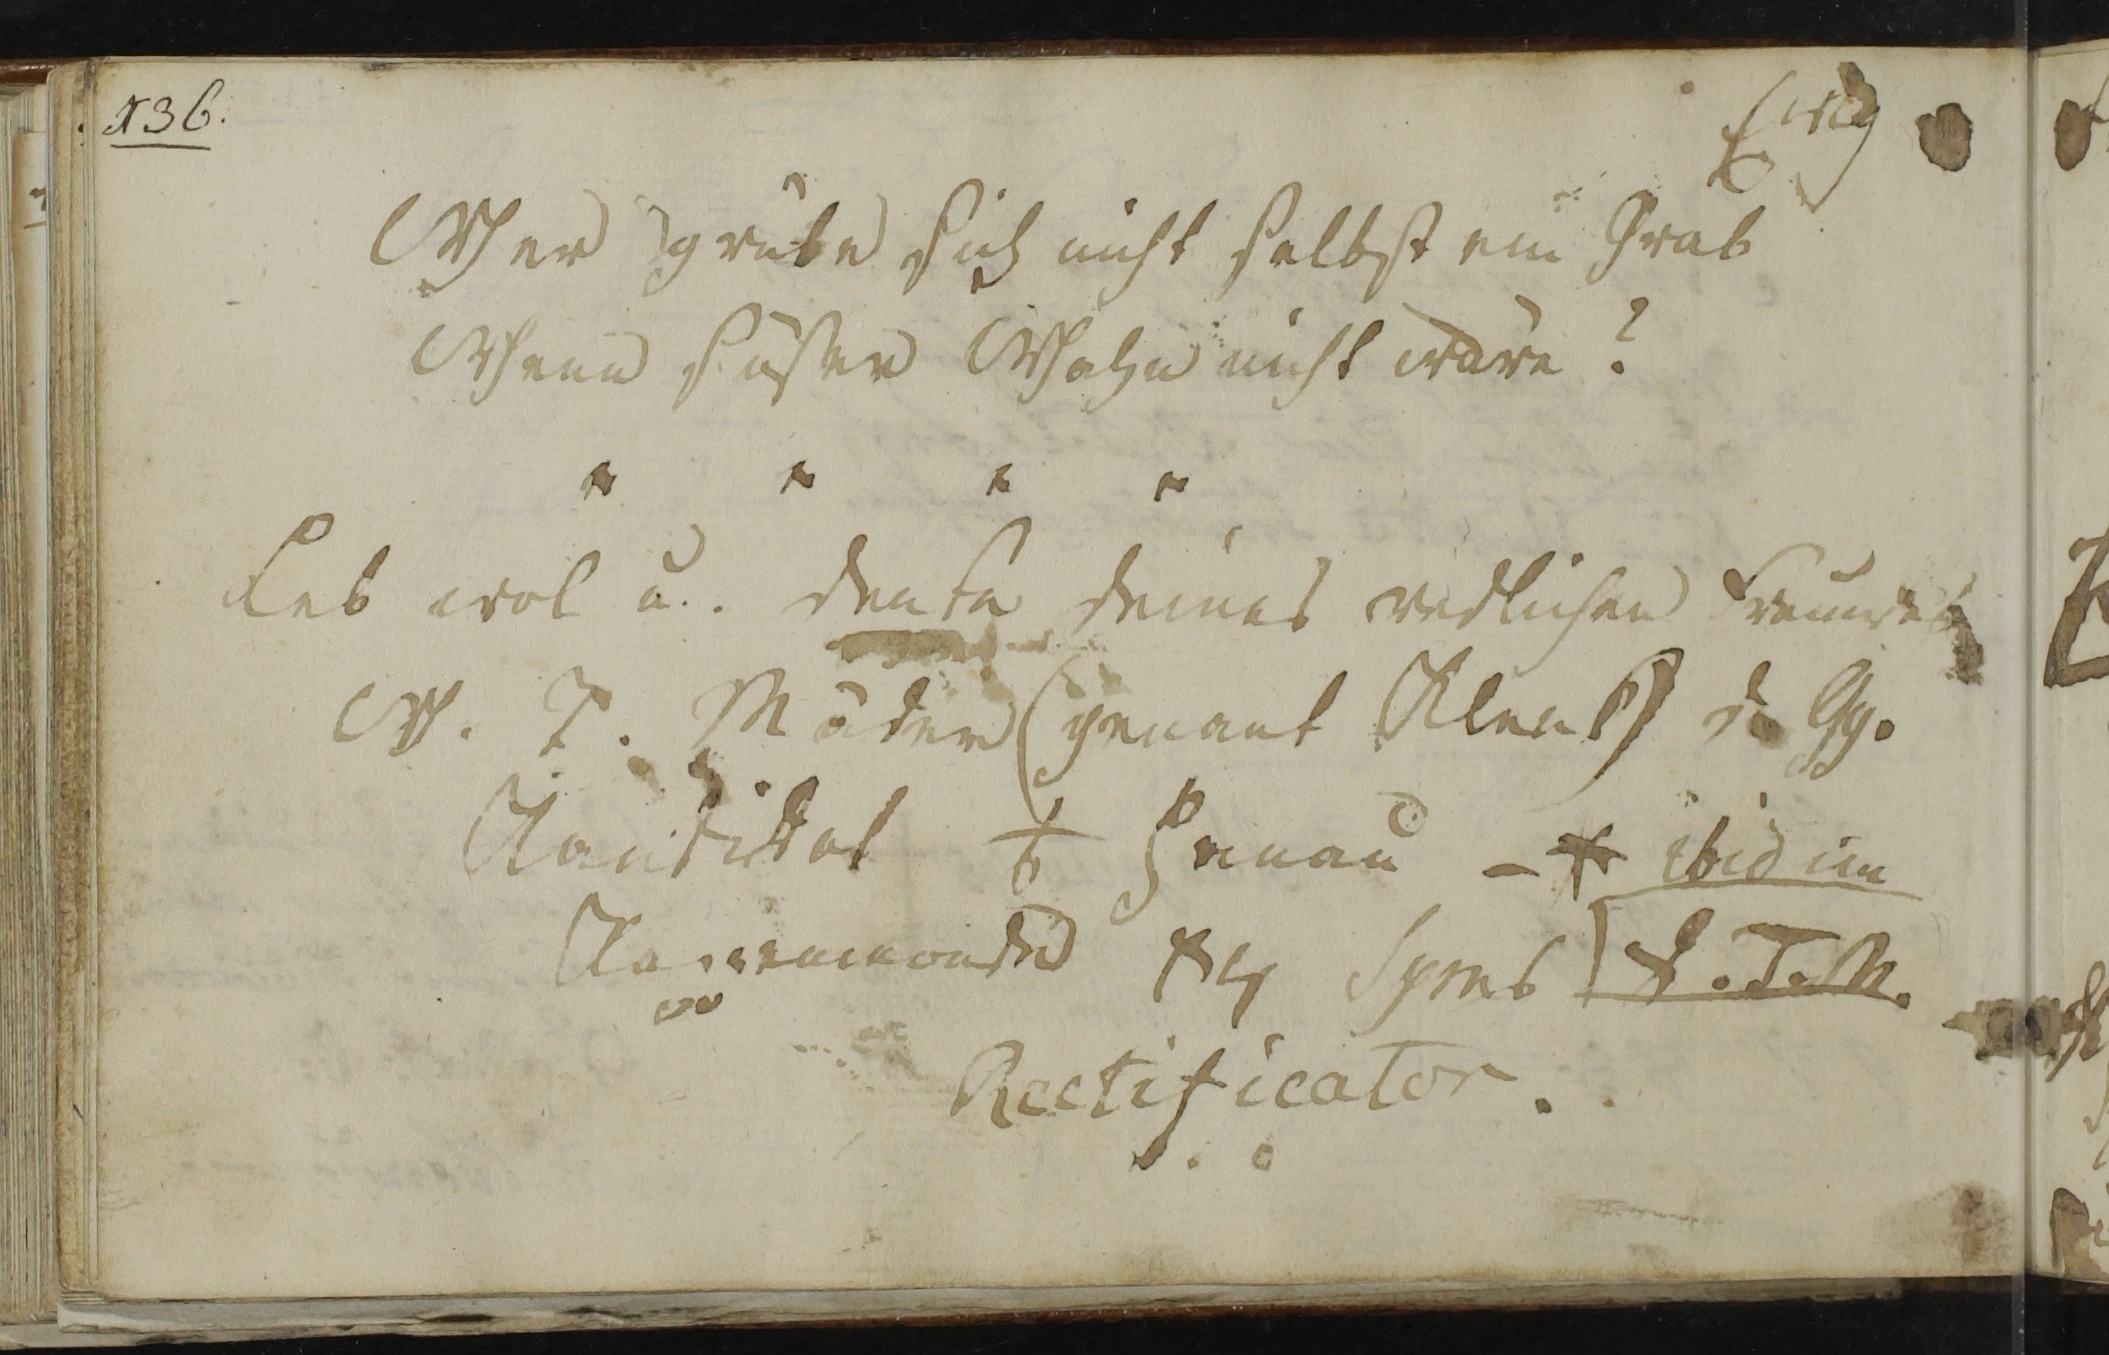 136.
Ewig
Wer grübe sich nicht selbst ein Grab
Wenn süser Wahn nicht wäre?
Leb wol u. denke deines redlichen Freundes
W. T. Mäder (genant Klenk) d. Gg.
Kandidat Hanau - ibid im
Symb
Rectificator.